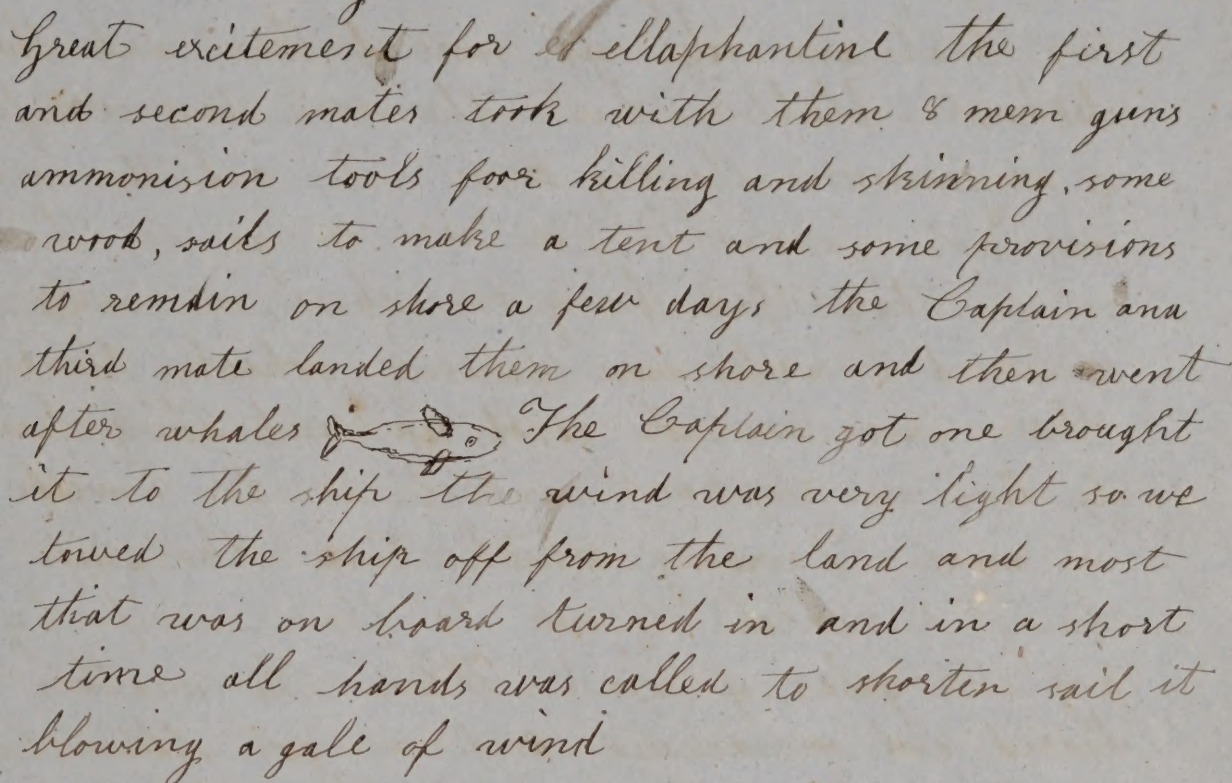 Great excitement for ellaphantine the first
and second mates took with them 8 mem guns
ammonision tools foor killing and skinning, some
wood, sails to make a tent and some provisions
to remain on shore a few days the Captain and
third mate landed them on shore and then went
after whales The Captain got one brought
it to the ship the wind was very light so we
towed the ship off from the land and most
that was on board turned in and in a short
time all hands was called to shorten sail it
blowing a gale of wind